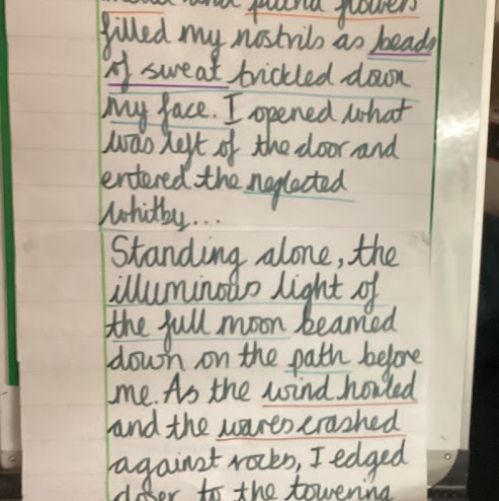 and flowers
filled my nostrils as beads
of sweat trickled down
my face. I opened what
was left of the door and
entered the neglected
Whitby...
Standing alone, the
illuminous light of
the full moon beamed
down on the path before
me. As the wind howled
and the waves crashed
against rocks, I edged
closer to the towering